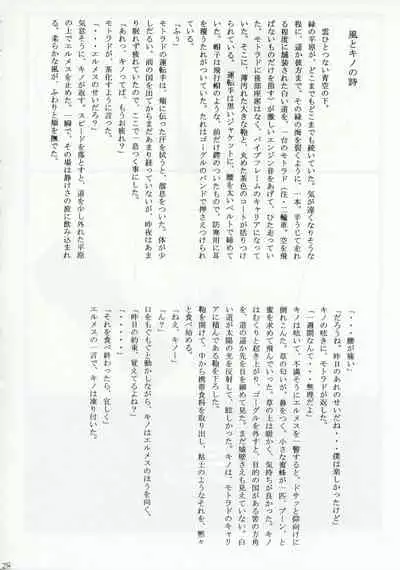 風とキノの詩
雲ひとつない青空の下、
緑の平原が、どこまでもどこまでも続いていた。気が遠くなりそうな
程に、遥か彼方まで。その緑の海を裂くように、一本、辛うじて走れ
る程度に舗装された白い道を、一台のモトラド（注・二輪車。空を飛
ばないものだけを指す）が激しいエンジン音をあげて、ひた走ってい
た。モトラドに後部座席はなく、パイプフレームのキャリアになって
いた。そこに、薄汚れた大きな鞄と、丸めた茶色のコートが括りつけ
られている。運転手は黒いジャケットに、腰を太いベルトで締めて
いた。帽子は飛行帽のような、前だけ鍔のついたもので、防寒用に耳
を覆うたれがついていた。たれはゴーグルのバンドで押さえつけられ
ている。
「ふぅ」
モトラドの運転手は、頬に伝った汗を拭うと、溜息をついた。体が少
しだるい。前の国を出てからまだあまり経っていないが、昨夜はあま
り眠れず疲れていたので、ここで一息つく事にした。
「あれっ、キノってば、もうお疲れ？」
モトラドが、茶化すように言った。
「・・・エルメスのせいだろ？」
気怠そうに、キノが返す。スピードを落とすと、道を少し外れた平原
の上でエルメスを止めた。一瞬で、その場は静けさの波に飲み込まれ
る。柔らかな風が、ふわりと頬を撫でた。
「・・・腰が痛い」
「だろうね、昨日のあれのせいだね・・・僕は楽しかったけど」
キノの呟きに、モトラドが返した。
「一週間なんて・・・無理だよ」
キノは呟いて、不満そうにエルメスを一瞥すると、ドサッと仰向けに
倒れこんた。草の匂いが、鼻をつく。小さな蜜蜂が一匹、ブーン、と
蜜を求めて飛んでいった。草の上は暖かく、気持ちが良かった。キノ
はむくりと起き上がり、ゴーグルを外すと、目的の国がある筈の方角
を、道の遥か先を目を細めて見た。まだ城壁さえも見えていない。白
い道が太陽の光を反射して、眩しかった。キノは、モトラドのキャリ
アに積んである鞄を下ろした。
鞄を開けて、中から携帯食料を取り出し、粘土のようなそれを、黙々
と食べ始める。
「ねえ、キノー」
「ん？」
口をもぐもぐと動かしながら、キノはエルメスのほうを向く。
「昨日の約束、覚えてるよね？」
「・・・・・」
「それを食べ終わったら、宜しく」
エルメスの一言で、キノは凍り付いた。